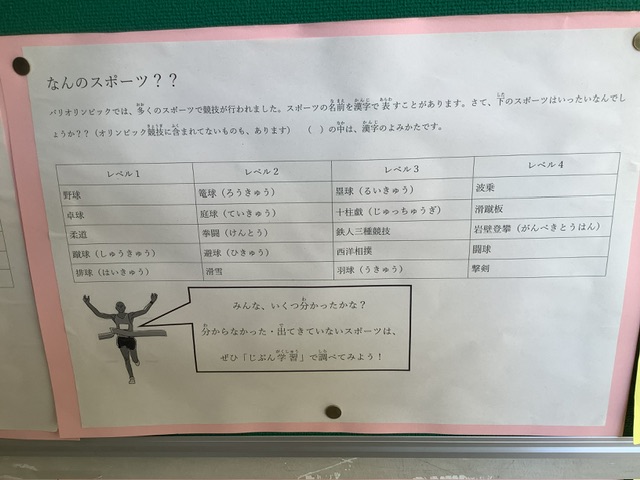 なんのスポーツ？？
パリオリンピックでは、多くのスポーツで競技が行われました。スポーツの名前を漢字で表すことがあります。さて、下のスポーツはいったいなんでし
ょうか？？（オリンピック競技に含まれてないものも、あります）　（　）の中は、漢字のよみかたです。
レベル１　レベル２　レベル３　レベル４
野球　篭球（ろうきゅう）　塁球（るいきゅう）　波乗
卓球　庭球（ていきゅう）　十柱戯（じゅっちゅうぎ）　滑蹴板
柔道　拳闘（けんとう）　鉄人三種競技　岩壁登攀（がんぺきとうはん）
蹴球（しゅうきゅう）　遊球（ひきゅう）　西洋相撲　闘球
排球（はいきゅう）　滑雪　羽球（うきゅう）　撃剣
みんな、いくつ分かったかな？
分からなかった・出てきていないスポーツは、
ぜひ「じぶん学習」で調べてみよう！